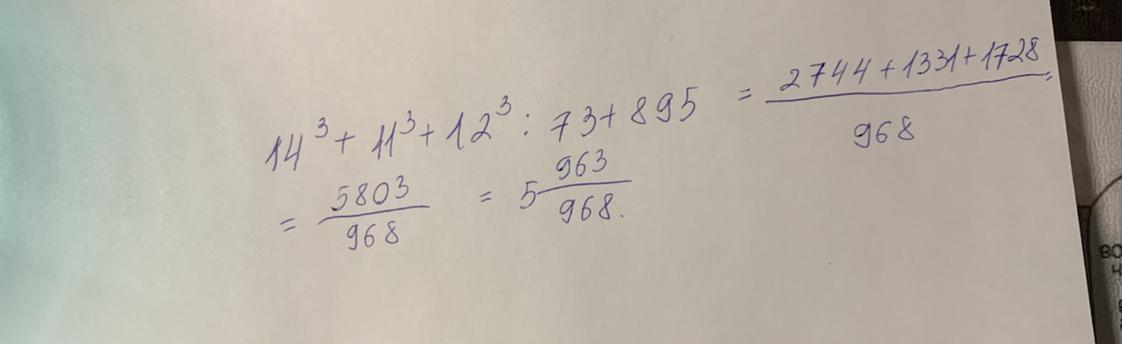 14³ + 11³ + 12³ : 73 + 895 = (2744 + 1331 + 1728)/968 =
= 5803/968 = 5 963/968.
ВО